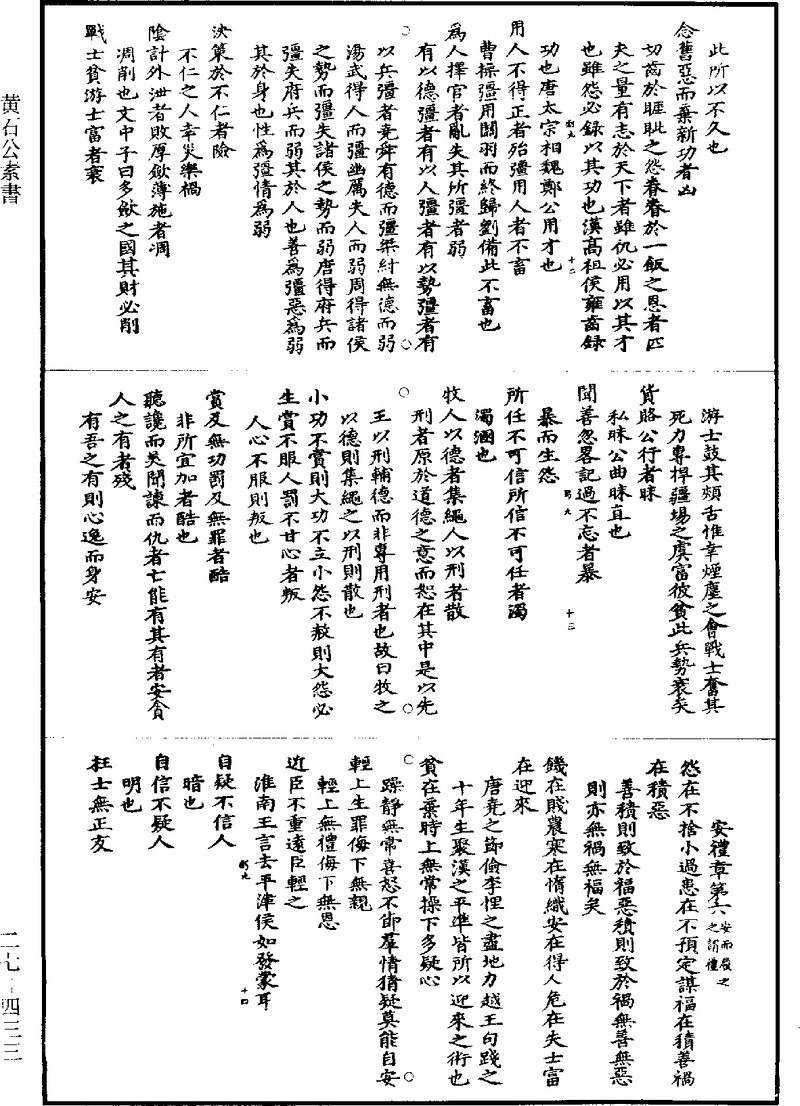 此所以不久也
念舊惡而棄新功者凶
切齒於睚眦之怨眷眷於一飯之恩者匹
夫之量有志於天下者雖仇必用以其才
也雖怨必録以其功也漢髙祖侯雍齒録
功也唐太宗相魏鄭公用才也
用人不得正者殆彊用人者不畜
曹操彊用關羽而終歸劉備此不畜也
為人擇官者亂失其所彊者弱
有以德彊者有以人彊者有以勢彊者有
以兵彊者堯舜有德而彊桀紂無德而弱
湯武得人而彊幽厲失人而弱周得諸侯
之勢而彊失諸侯之勢而弱唐得府兵而
彊失府兵而弱其於人也善為彊惡為弱
其於身也性為彊情為弱
決策於不仁者險
不仁之人幸災樂禍
陰計外泄者敗厚斂薄施者凋
凋削也文中子曰多斂之國其財必削
戰士貧游士富者衰
游士鼓其頰舌惟幸煙塵之會戰士奮其
死力專捍疆場之虞富彼貧此兵勢衰矣
貨賂公行者昧
私昧公曲昧直也
聞善忽畧記過不忘者暴
暴而生怨
所任不可信所信不可任者濁
濁溷也
牧人以德者集繩人以刑者散
刑者原於道德之意而恕在其中是以先
王以刑輔德而非專用刑者也故曰牧之
以德則集繩之以刑則散也
小功不賞則大功不立小怨不赦則大怨必
生賞不服人罰不甘心者叛
人心不服則叛也
賞及無功罰及無罪者酷
非所宜加者酷也
聽讒而美聞諫而仇者亡能有其有者安貪
人之有者殘
有吾之有則心逸而身安
安禮章第六 安而履之之謂禮
怨在不捨小過患在不預定謀福在積善禍
在積惡
善積則致於福惡積則致於禍無善無惡
則亦無禍無福矣
饑在賤農寒在惰織安在得人危在失士富
在迎來
唐堯之節儉李悝之盡地力越王句踐之
十年生聚漢之平準皆所以迎來之術也
貧在棄時上無常操下多疑心
躁静無常喜怒不節羣情猜疑莫能自安
輕上生罪侮下無親
輕上無禮侮下無恩
近臣不重遠臣輕之
淮南王言去平津侯如發蒙耳
自疑不信人
暗也
自信不疑人
明也
枉士無正友
黃石公素書
二七-四三三
十二
十三
十四